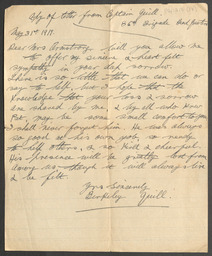 Copy of letter from Captain Quill.
86th Brigade Head Quarters
May 31st 1917.
Dear Mrs Armstrong Will you allow me
to offer my sincere & heart felt
sympathy in your sad
There is so little that we can do or
say to help, but I hope that the
knowledge that your loss & sorrow
are shared by me & by all who knew
Pat, may be some small comfort to you
I shall never forget him. He was always
so good at his own job, so ready
to help others, & so kind & cheerful.
His presence will be greatly lost from
among us though it will always live
& be felt.
Yrs Sincerely
Berkeley Quill.